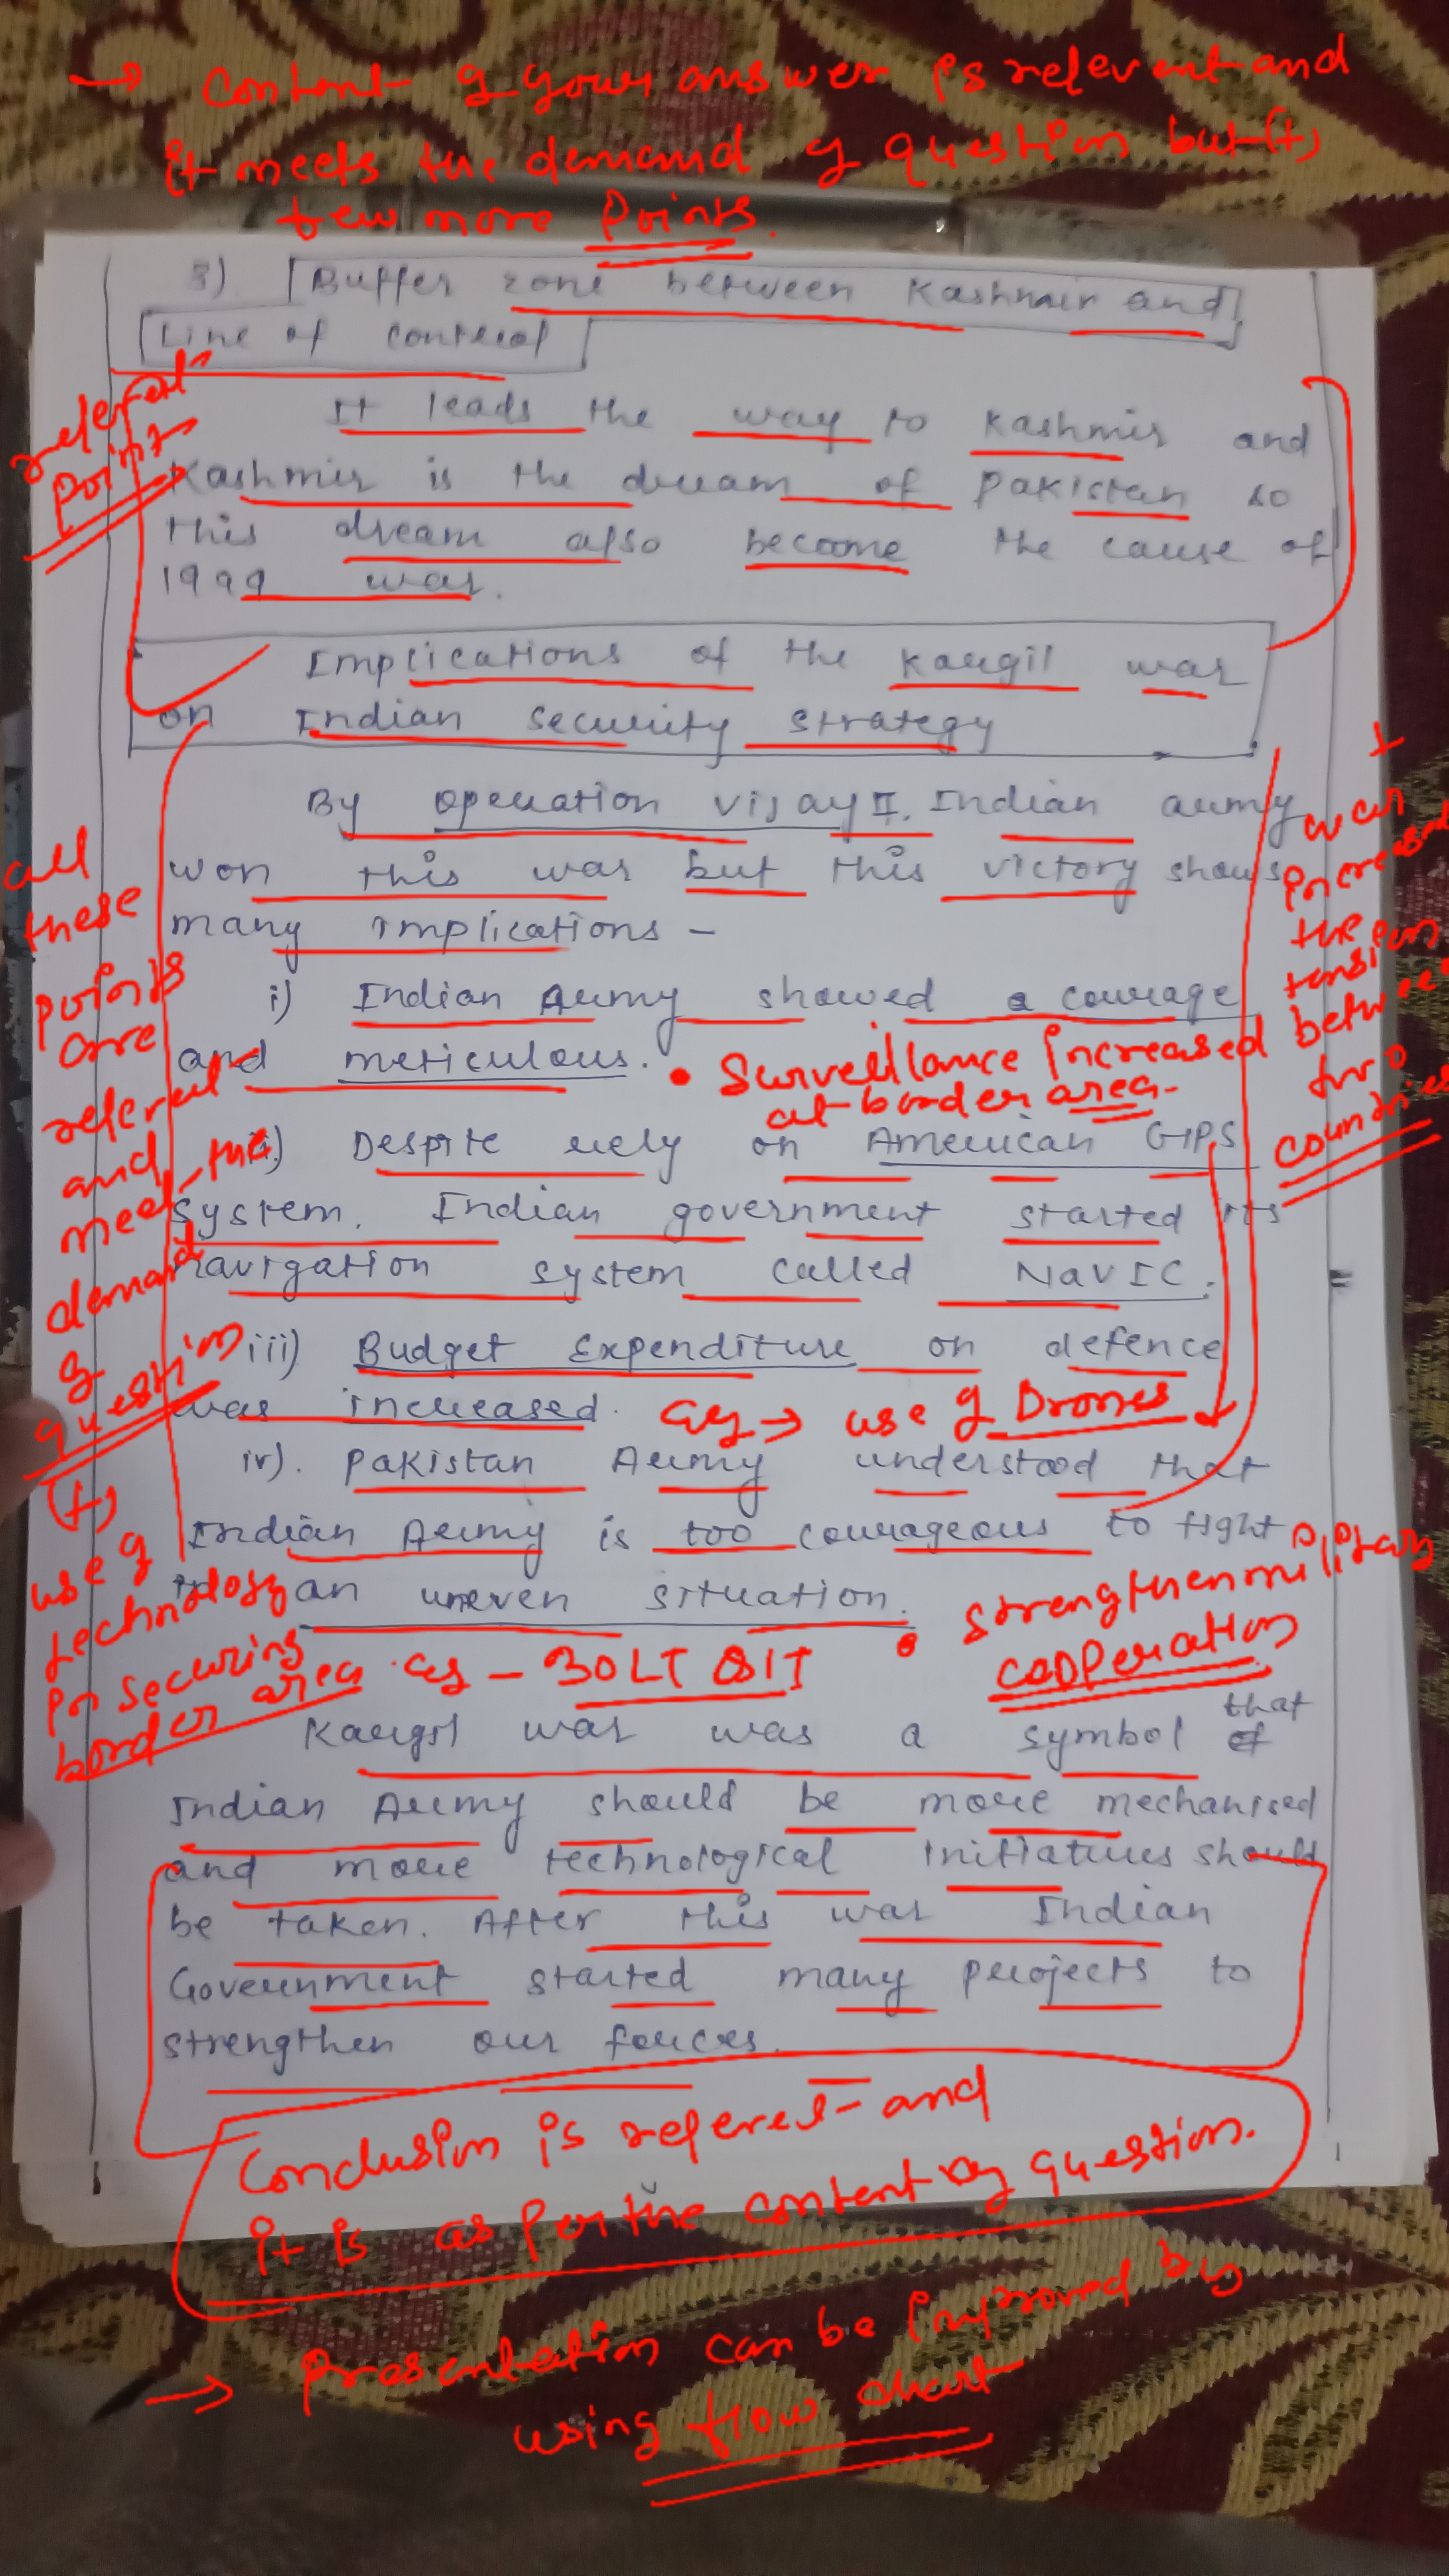 → Content of your answer is relevent and
it meets the demand of question but (+)
few more Points.
3) Buffer zone between Kashmir and
Line of control
relevent
points
It leads the way to Kashmir and
Kashmir is the dream of Pakistan so
this dream also become the cause of
1999 war.
Implications of the Kargil war
on Indian security strategy
By operation vijay II. Indian army
won this war but this victory shows
many implications -
i) Indian Army showed a courage
and meticulous.
• Surveillance increased
at border area.
ii) Despite rely on American GPS
system. Indian government started its
navigation system called NavIC.
iii) Budget Expenditure on defence
was increased.
eg → use of Drones
iv). Pakistan Army understood that
Indian Army is too courageous to fight
in an uneven situation.
• strengthen military
cooperation
all
these
points
are
relevent
and
meet the
demand
of
question
(+)
use of
technology
in securing
border area. eg - BOLT QIT
+
war
increased
the
tension
between
two
countries
Kargil war was a symbol that
Indian Army should be more mechanised
and more technological initiatives should
be taken. After this war Indian
Government started many projects to
strengthen our forces.
Conclusion is relevent and
it is as per the content of question.
→ Presentation can be improved by
using flow chart